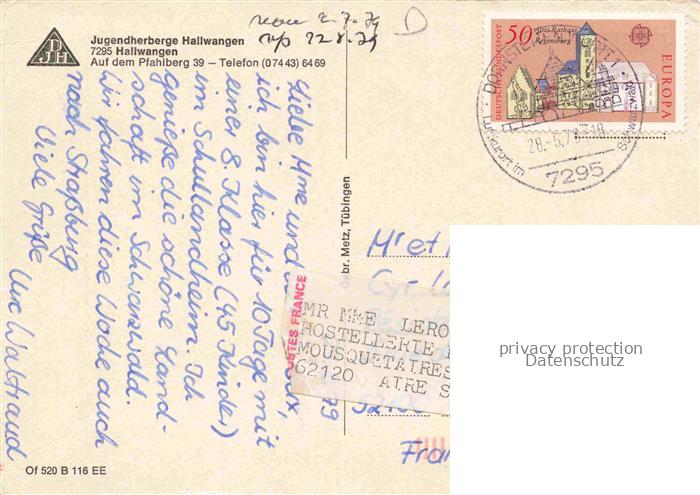 Jugendherberge Hallwangen
7295 Hallwangen
Auf dem Pfahlberg 39 – Telefon (0 74 43) 64 69
DJH
2.7.79
rp 22.8.79
D
50
Altes Rathaus
Regensburg
DEUTSCHE BUNDESPOST
EUROPA
DORNSTETTEN
Luftkurort im Schwarzwald
28.-6.79-18
7295
Liebe Mme und
ich bin hier für 10 Tage mit
einer 8. Klasse (45 Kinder)
im Schullandheim. Ich
genieße die schöne Land-
schaft im Schwarzwald.
Wir fahren diese Woche auch
nach Straßburg
Viele Grüße
Waltraud
br. Metz, Tübingen
Mr et
POSTES FRANCE
MR MME LERO
HOSTELLERIE
MOUSQUETAIRES
62120 AIRE S
Fra
Of 520 B 116 EE
privacy protection
Datenschutz